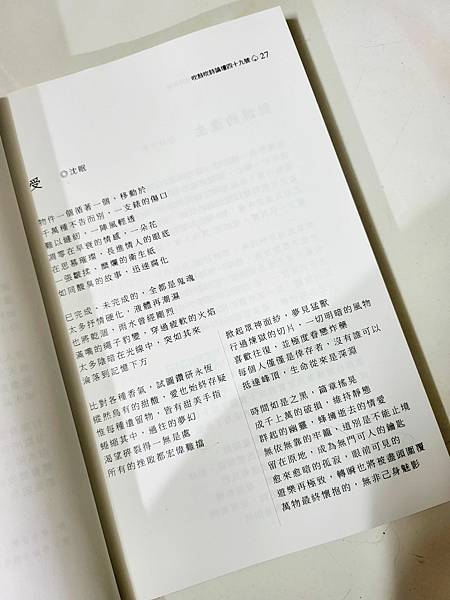 吹鼓吹詩論壇四十九號 27
愛
◎沈眠
物件一個循著一個，移動於
千萬種不告而別，一支錶的傷口
難以縫紉，一陣風輕透
凋零在早衰的情感，一朵花
在思慕璀璨，長進情人的眼底
一張皺揉、糜爛的衛生紙
如同酸臭的故事，迅速腐化
已完成、未完成的，全都是鬼魂
太多抒情硬化，液體再潮濕
也將乾涸，雨水曾經剛烈
滿嘴的繩子豹變，穿過疲軟的火焰
太多陰暗在光線中，突如其來
淪落到記憶下方
比對各種香氣，試圖鑽研永恆
縱然烏有的甜酸，愛也始終存疑
他每種遺留物，皆有甜美手指
蜷縮其中，過往的夢幻
渴望碎裂得一無是處
所有的挫敗都宏偉難擋
掀起眾神面紗，夢見猛獸
行過煉獄的切片，一切明暗的風物
喜歡往復，並極度眷戀炸藥
每個人僅僅是倖存者，沒有誰可以
抵達峰頂，生命從來是深淵
時間如是之黑，篇章搖晃
成千上萬的破損，維持靜態
群起的幽靈，蜂擁逝去的情愛
無依無靠的牢籠，遺別是不能止境
留在原地，成為無門可人的鑰匙
愈來愈暗的孤寂，眼前可見的
遊樂再極致，轉瞬也將被盡頭圍覆
萬物最終懷抱的，無非己身魅影